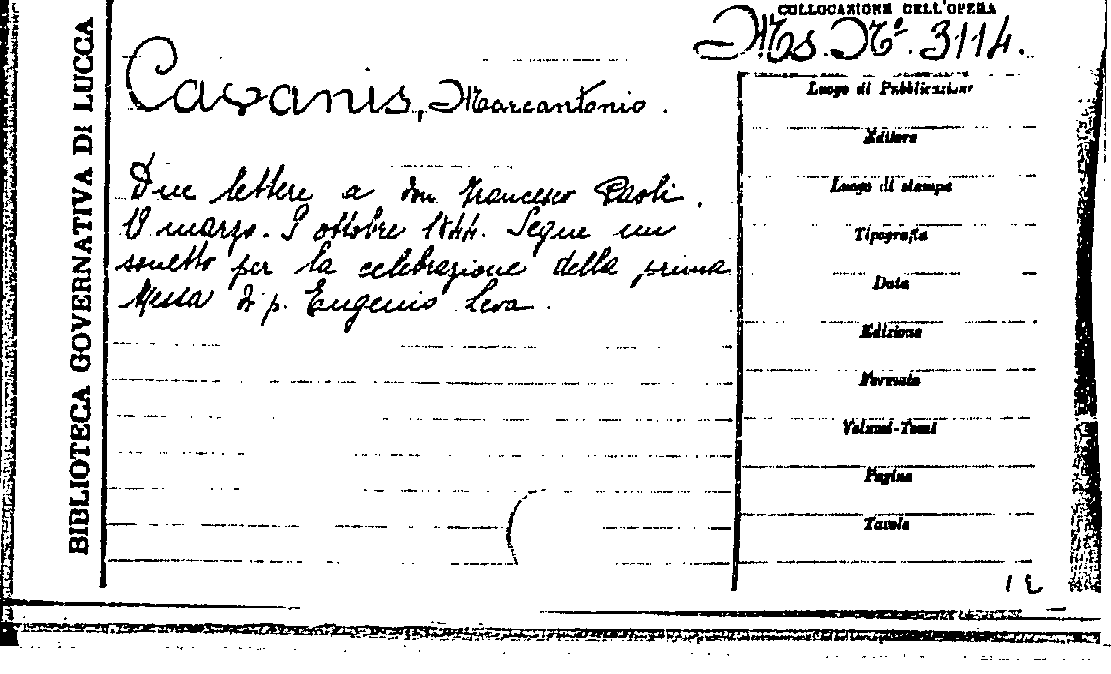 BIBLIOTECA GOVERNATIVA DI LUCCA
COLLOCAZIONE DELL'OPERA
Ms. Nº. 3114.
Cavanis, Marcantonio.
Due lettere a don Francesco Paoli.
marzo. 9 ottobre 1844. Segue un
sonetto per la celebrazione della prima
Messa di p. Eugenio Leva.
Luogo di Pubblicazione
Editore
Luogo di stampa
Tipografia
Data
Edizione
Formato
Volumi-Tomi
Pagine
Tavole